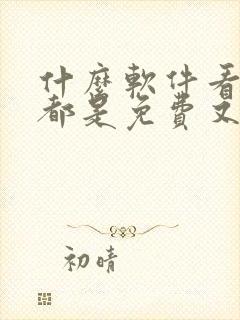 什麼軟件看
都是免費又
初晴